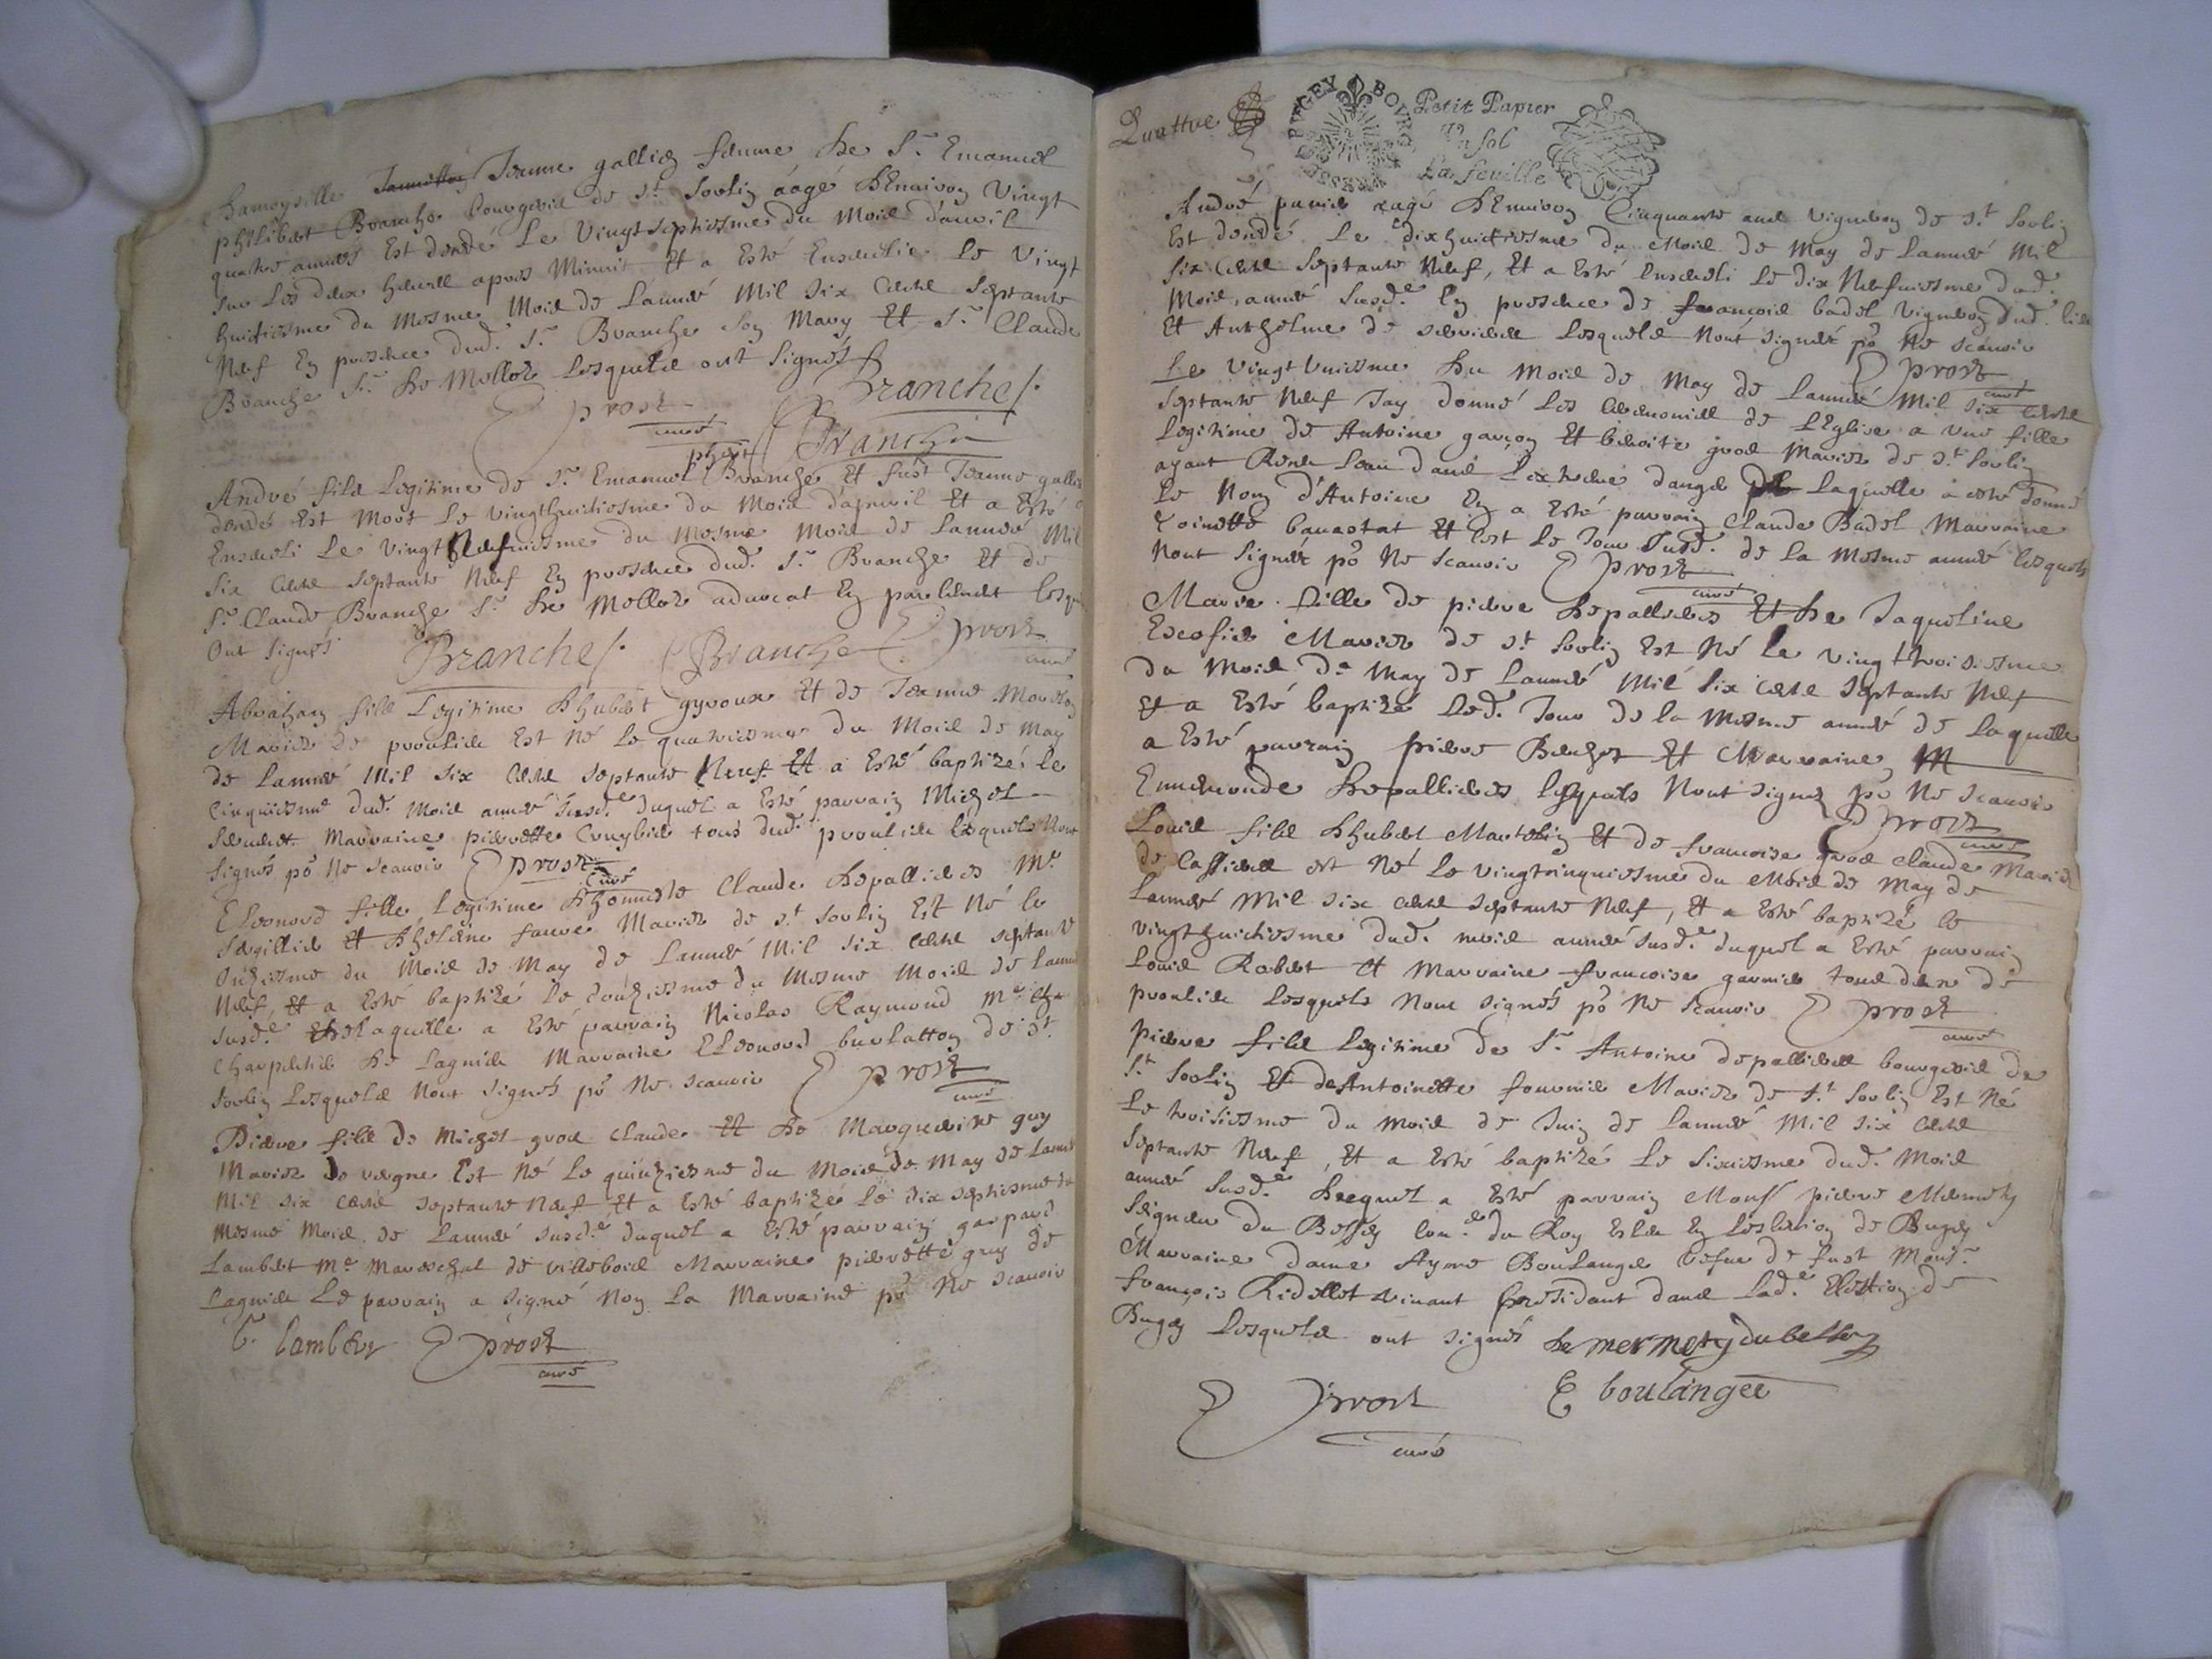 Damoyselle Jeanne gallien femme De Sr. Emanuel
philibert Branche bourgeois de St Sorlin aagé d'Environ vingt
quatre années Est decedé Le vingtseptiesme du Mois d'avril
sur Les deux heures apres Minuit Et a Esté Ensevelie Le vingt
huitiesme du Mesme Mois de L'année Mil six cents septante
Neuf En presence dud. Sr. Branche son Mary Et Sr. Claude
Branche Sr. De Mollon Lesquels ont signés
Branche
prost curé
Branche
phert
André fils Legitime de Sr. Emanuel Branche Et fust Jeanne gallien
decedé Est Mort Le vingthuitiesme du Mois d'apvril Et a Esté
Enseveli Le vingt Neufviesme du Mesme Mois de L'année Mil
six cents septante Neuf En presence dud. Sr. Branche Et de
Sr. Claude Branche Sr. De Mollon advocat En parlement Lesqu
Ont signés Branche Branche prost
curé
Abraham fils Legitime d'hubert gyroux Et de Jeanne
Mariés de proulieu Est Né Le quatriesme du Mois de May
de L'année Mil six cents septante Neuf Et a Esté baptizé le
Cinquiesme dud. Mois année susd.e duquel a Esté parrain Michel
Marraine pierrette tous dud. proulieu Lesquels Nont
signés po Ne scavoir prost
curé
Eleonord fille Legitime d'honneste Claude Depallieres Me
Et d'helaine favre Mariés de St Sorlin Est Né le
Onziesme du Mois de May de L'année Mil six cents septante
Neuf, Et a Esté baptizé Le douziesme du Mesme Mois de L'année
susd.e de laquelle a Esté parrain Nicolas Raymond Me
Charpentier De Lagnieu Marraine Eleonord burlatton de St
Sorlin Lesquels Nont signés po Ne scavoir prost
curé
Pierre fils de Michel gros Claude Et De Marguerite guy
Mariés de Est Né Le quinziesme du Mois de May de L'année
Mil six cents septante Neuf Et a Esté baptizé Le dix septiesme du
Mesme Mois de L'année susd.e duquel a Esté parrain gaspard
Lambert Me Mareschal de villebois Marraine pierrette guy de
Lagnieu Le parrain a signé Non La Marraine po Ne scavoir
G. Lambert prost
curé
Quattre
BUGEY BOURG BRESSE
Petit Papier
Un sol
La feuille
André aagé d'Environ Cinquante ans vigneron de St Sorlin
Est decedé Le dixhuictiesme du Mois de May de L'année Mil
six cents septante Neuf, Et a Esté Enseveli Le dix Neufviesme dud.
Mois, année susd.e En presence de françois badel vigneron dud. lieu
Et Anthelme de Lesquels Nont signés po Ne scavoir
prost
curé
Le vingt uniesme du Mois de May de L'année Mil six cents
septante Neuf Jay donné Les Ceremonies de L'Eglise a une fille
Legitime de Antoine garçon Et benoite gros Mariés de St Sorlin
ayant Receu L'eau dans danger Laquelle a esté donné
Le Nom d'Antoine En a Esté parrain Claude Badel Marraine
Et c'est Le Jour susd. de La Mesme année Lesquels
Nont signés po Ne scavoir prost
curé
Marie fille de pierre Depallieres Et De Jaqueline
Escofier Mariés de St Sorlin Est Né Le vingttroisiesme
du Mois de May de L'année Mil six cents septante Neuf
Et a Esté baptizé Led. Jour de La Mesme année de Laquelle
a Esté parrain pierre Et Marraine
Ennemonde Depallieres Lesquels Nont signés po Ne scavoir
prost
curé
Louis fils d'hubert Martelin Et de francoise gros Claude Mariés
de est Né Le vingtcinquiesme du Mois de May de
L'année Mil six cents septante Neuf, Et a Esté baptizé Le
vingthuictiesme dud. mois année susd.e duquel a Esté parrain
Louis Robert Et Marraine francoise garnier tous deux de
proulieu Lesquels Nont signés po Ne scavoir prost
curé
Pierre fils Legitime de Sr. Antoine depallieres bourgeois de
St Sorlin Et de Antoinette fournier Mariés de St Sorlin Est Né
Le troisiesme du Mois de Juin de L'année Mil six cents
septante Neuf, Et a Esté baptizé Le sixiesme dud. Mois
année susd.e Duquel a Esté parrain Monsr pierre Mermety
seigneur du Bessey Con.er du Roy Esleu En L'eslection de Bugey
Marraine dame Ayme Boulangé vefve de fust Monsr.
françois Ridellet vivant president dans Lad.e Election de
Bugey Lesquels ont signés De mermety du bessey
prost E boulangee
curé